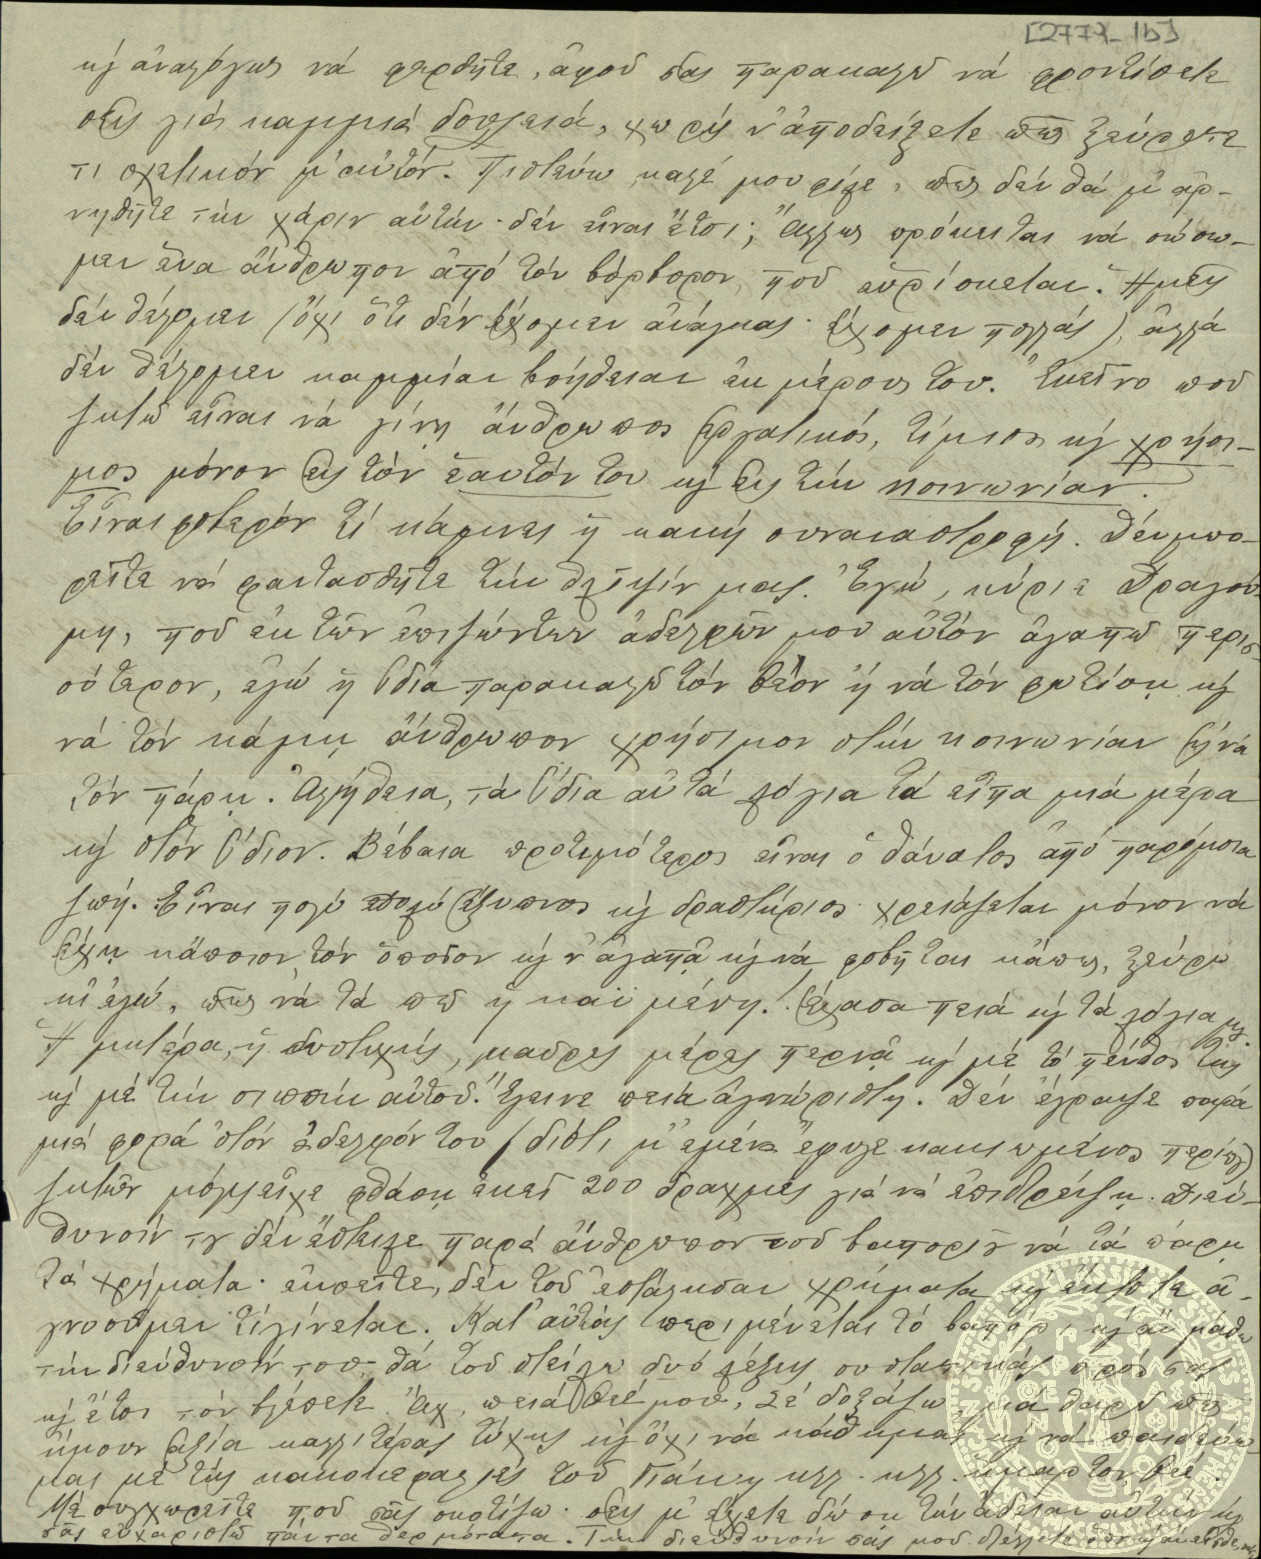 [277]-1b]
κι' ἀναλόγως νά φερθῆτε, ἀφοῦ σας παρακαλῶ νά φροντίσετε
σεῖς γιά καμμιά δουλειά, χωρίς ν' ἀποδείξετε πῶς ξεύρετε
τι σχετικόν μ' αὐτόν. Πιστεύω, καλέ μου φίλε, πῶς δέν θά μ' ἀρ-
νηθῆτε τήν χάριν αὐτήν· δέν εἶναι ἔτσι; Ἄλλως πρόκειται νά σώσω-
μεν ἕνα ἄνθρωπον ἀπό τόν βόρβορον, ποῦ εὑρίσκεται. Ἡμεῖς
δέν θέλομεν (ὄχι ὅτι δέν ἔχομεν ἀνάγκας· ἔχομεν πολλάς), ἀλλά
δέν θέλομεν καμμίαν βοήθειαν ἐκ μέρους του. Ἐκεῖνο ποῦ
ζητῶ εἶναι νά γίνῃ ἄνθρωπος ἐργατικός, τίμιος κι' χρήσι-
μος μόνον εἰς τόν ἑαυτόν του κι' εἰς τήν κοινωνίαν.
Εἶναι φοβερόν τί κάμνει ἡ κακή συναναστροφή. Δέν μπο-
ρεῖτε νά φαντασθῆτε τήν θλῖψίν μας. Ἐγώ, κύριε Δραγού-
μη, ποῦ ἐκ τῶν ἐπιζώντων ἀδελφῶν μου αὐτόν ἀγαπῶ περισ-
σότερον, ἐγώ ἡ ἴδια παρακαλῶ τόν Θεόν ἤ νά τόν φωτίσῃ κι'
νά τόν κάμῃ ἄνθρωπον χρήσιμον στήν κοινωνίαν ἤ νά
τόν πάρῃ. Ἀλήθεια, τά ἴδια αὐτά λόγια τά εἶπα μιά μέρα
κι' στόν ἴδιον. Βέβαια προτιμότερος εἶναι ὁ θάνατος ἀπό παρόμοια
ζωή. Εἶναι πολύ ἔξυπνος κι' δραστήριος· χρειάζεται μόνον νά
ἔχῃ κάποιον τόν ὁποῖον κι' ν' ἀγαπᾷ κι' νά φοβῆται κάπως, ξεύρω
κι' ἐγώ, πῶς νά τά πῶ ἡ καϊμένη! Ἔχασα πειά κι' τά λόγια μου.
Ἡ μητέρα, ἡ δυστυχής, μαῦρες μέρες περνᾷ κι' μέ τό πένθος της
κι' μέ τήν σιωπήν αὐτοῦ. Ἔγεινε πειά ἀγνώριστη. Δέν ἔγραψε παρά
μιά φορά στόν ἀδελφόν του (διότι μ' ἐμένα ἔφυγε κακιωμένος)
ζητῶν μόλις εἶχε φθάσῃ ἐκεῖ 200 δραχμές γιά νά ἐπιστρέψῃ. Διεύ-
θυνσίν του δέν ἔστειλε παρά ἄνθρωπον τοῦ βαποριοῦ νά τά πάρῃ
τά χρήματα· ἐννοεῖτε, δέν τοῦ ἐστάλησαν χρήματα κι' ἔκτοτε ἀ-
γνοοῦμεν τί γίνεται. Κατ' αὐτάς περιμένεται τό βαπόρι κι' ἄν μάθω
τήν διεύθυνσίν του θά τοῦ στείλω δυό λέξεις συστατικάς πρός σας
κι' ἔτσι τόν βλέπετε. Ἄχ, πειά Θεέ μου, Σέ δοξάζω, μά θαρρῶ πῶς
ἤμουν ἀξία καλλιτέρας τύχης κι' ὄχι νά κάθωμαι κι' νά παιδεύω-
μαι μέ τίς κακοκεφαλιές τοῦ Γιάννη κλπ. κλπ. ἥμαρτον, Θεέ.
Μέ συγχωρεῖτε ποῦ σᾶς σκοτίζω· σεῖς μ' ἔχετε δώσῃ τήν ἄδειαν αὐτήν κι'
σᾶς εὐχαριστῶ πάντα θερμότατα. Τήν διεύθυνσίν σας μοῦ